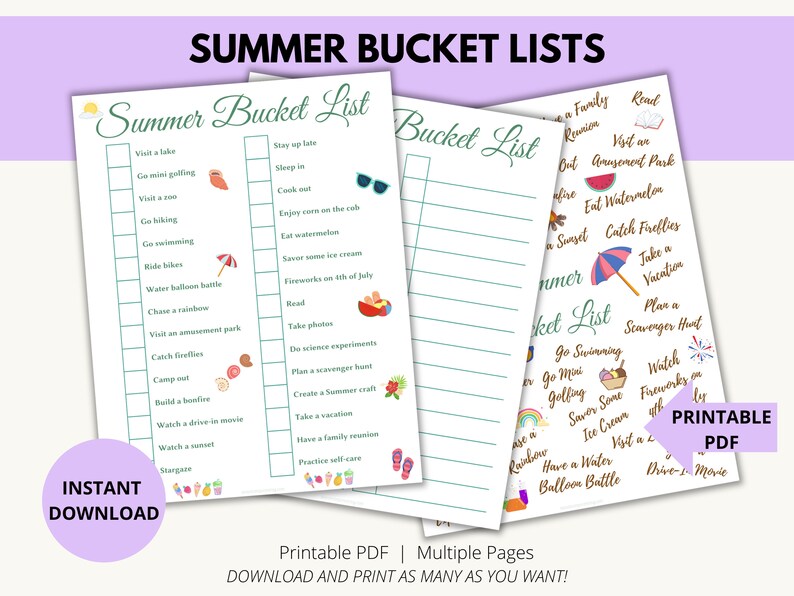 SUMMER BUCKET LISTS
Summer Bucket List
Visit a lake
Go mini golfing
Visit a zoo
Go hiking
Go swimming
Ride bikes
Water balloon battle
Chase a rainbow
Visit an amusement park
Catch fireflies
Camp out
Build a bonfire
Watch a drive-in movie
Watch a sunset
Stargaze
Stay up late
Sleep in
Cook out
Enjoy corn on the cob
Eat watermelon
Savor some ice cream
Fireworks on 4th of July
Read
Take photos
Do science experiments
Plan a scavenger hunt
Create a Summer craft
Take a vacation
Have a family reunion
Practice self-care
Bucket List
a Family
Reunion
Read
Visit an
Amusement Park
Out
Eat Watermelon
a Sunset
Catch Fireflies
Take a
Vacation
Plan a
Scavenger Hunt
Go Swimming
Go Mini
Golfing
Savor Some
Ice Cream
Watch
Fireworks on
Visit a
Rainbow
Have a Water
Balloon Battle
Movie
PRINTABLE
PDF
INSTANT
DOWNLOAD
Printable PDF | Multiple Pages
DOWNLOAD AND PRINT AS MANY AS YOU WANT!